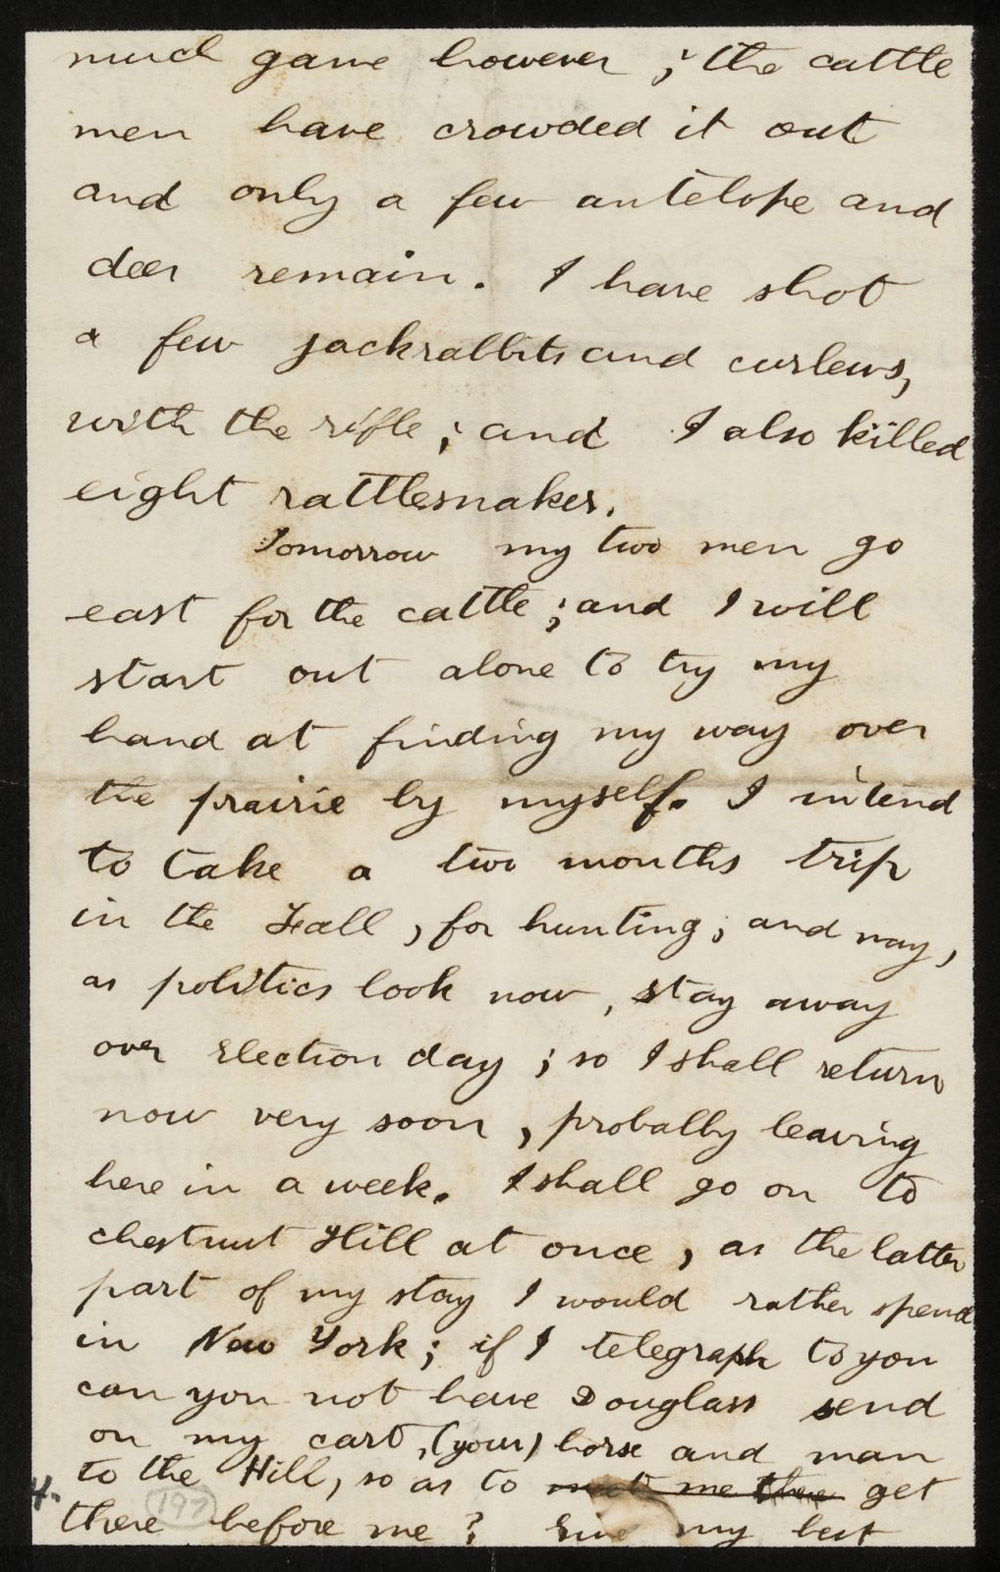 much game however ; the cattle
men have crowded it out
and only a few antelope and
deer remain. I have shot
a few jackrabbits and curlews,
with the rifle ; and I also killed
eight rattlesnakes.
Tomorrow my two men go
east for the cattle ; and I will
start out alone to try my
hand at finding my way over
the prairie by myself. I intend
to take a two months trip
in the Fall, for hunting ; and may,
as politics look now, stay away
over Election day ; so I shall return
now very soon, probably leaving
here in a week. I shall go on to
chestnut Hill at once, as the latter
part of my stay I would rather spend
in New York; if I telegraph to you
can you not have Douglass send
on my cart, (your) horse and man
to the Hill, so as to me there get
4. (197)
there before me ? Give my best